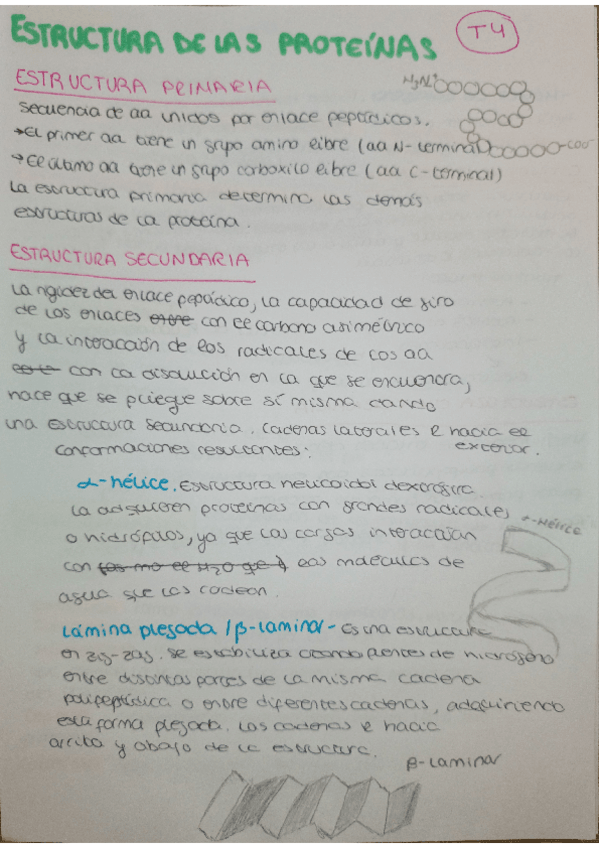 ESTRUCTURA DE LAS PROTEÍNAS T4
ESTRUCTURA PRIMARIA
secuencia de aa unidos por enlace peptídicos.
→El primer aa tiene un grupo amino libre (aa N-terminal)
→El último aa tiene un grupo carboxilo libre (aa C-terminal)
La estructura primaria determina las demás
estructuras de la proteína.
ESTRUCTURA SECUNDARIA
La rigidez del enlace peptídico, la capacidad de giro
de los enlaces entre con el carbono asimétrico
y la interacción de los radicales de los aa
con la disolución en la que se encuentra,
hace que se pliegue sobre sí misma dando
una estructura secundaria. Cadenas laterales R hacia el
exterior.
Conformaciones resultantes:
α-hélice. Estructura helicoidal dextrógira.
La adquieren proteínas con grandes radicales
o hidrófilos, ya que las cargas interactúan
con las moléculas de
agua que las rodean.
α-Hélice
Lámina plegada / β-laminar - Es una estructura
en zig-zag. Se estabiliza creando puentes de hidrógeno
entre distintas partes de la misma cadena
polipeptídica o entre diferentes cadenas, adquiriendo
esta forma plegada. Las cadenas R hacia
arriba y abajo de la estructura.
β-laminar